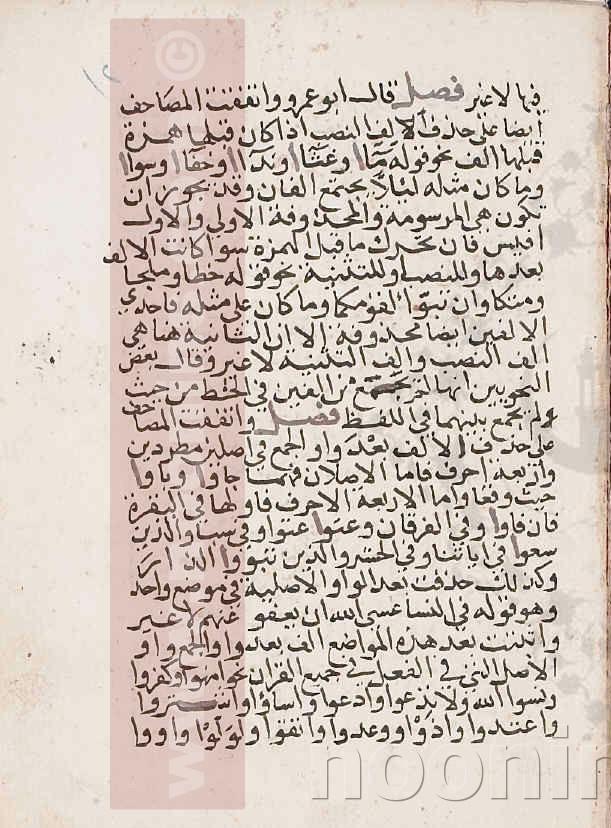 فيها لا غير فصل قال ابو عمرو واتفقت المصاحف
ايضا على حذف الالف النصب اذا كان قبلها همزة
قبلها الف نحو قوله مآا وغثآا وندآا او جفآا وسوآا
وما كان مثله ليلا يجتمع الفان وقد يجوز ان
تكون هي المرسومة والمحذوفة الاولى والاول
اقيس فان تحرك ما قبل الهمزة سوا كانت الالف
بعدها للنصب او للتثنية نحو قوله خطا وملجا
ومتكا وان تبوا لقومكما وما كان على مثله فاحدى
الالفين ايضا محذوفة الا ان الثانية هنا هي
الف النصب والف التثنية لا غير وقال بعض
النحويين انها لم تجتمع بين الفين في الخط من حيث
لم يجمع بينهما في اللفظ فصل واتفقت المصاحف
على حذف الالف بعد واو الجمع في اصلين مطردين
واربعة احرف فاما الاصلان فهما جاو وباو
حيث وقعا واما الاربعة الاحرف فاولها في البقرة
فان فاو وفي الفرقان وعتو عتوا وفي سبا والذين
سعو في اياتنا وفي الحشر والذين تبوو الدار
وكذلك حذفت بعد الواو الاصلية في موضع واحد
وهو قوله في النسا عسى الله ان يعفو عنهم لا غير
واثبتت بعد هذه المواضع الف بعد واو الجمع وواو
الاصل التي في الفعل في جميع القران نحو امنوا وكفروا
ونسوا الله ولا تدعوا وادعوا واساوا واشتروا
واعتدوا واذوا وعدوا واتقوا ولولوا واووا
noonin